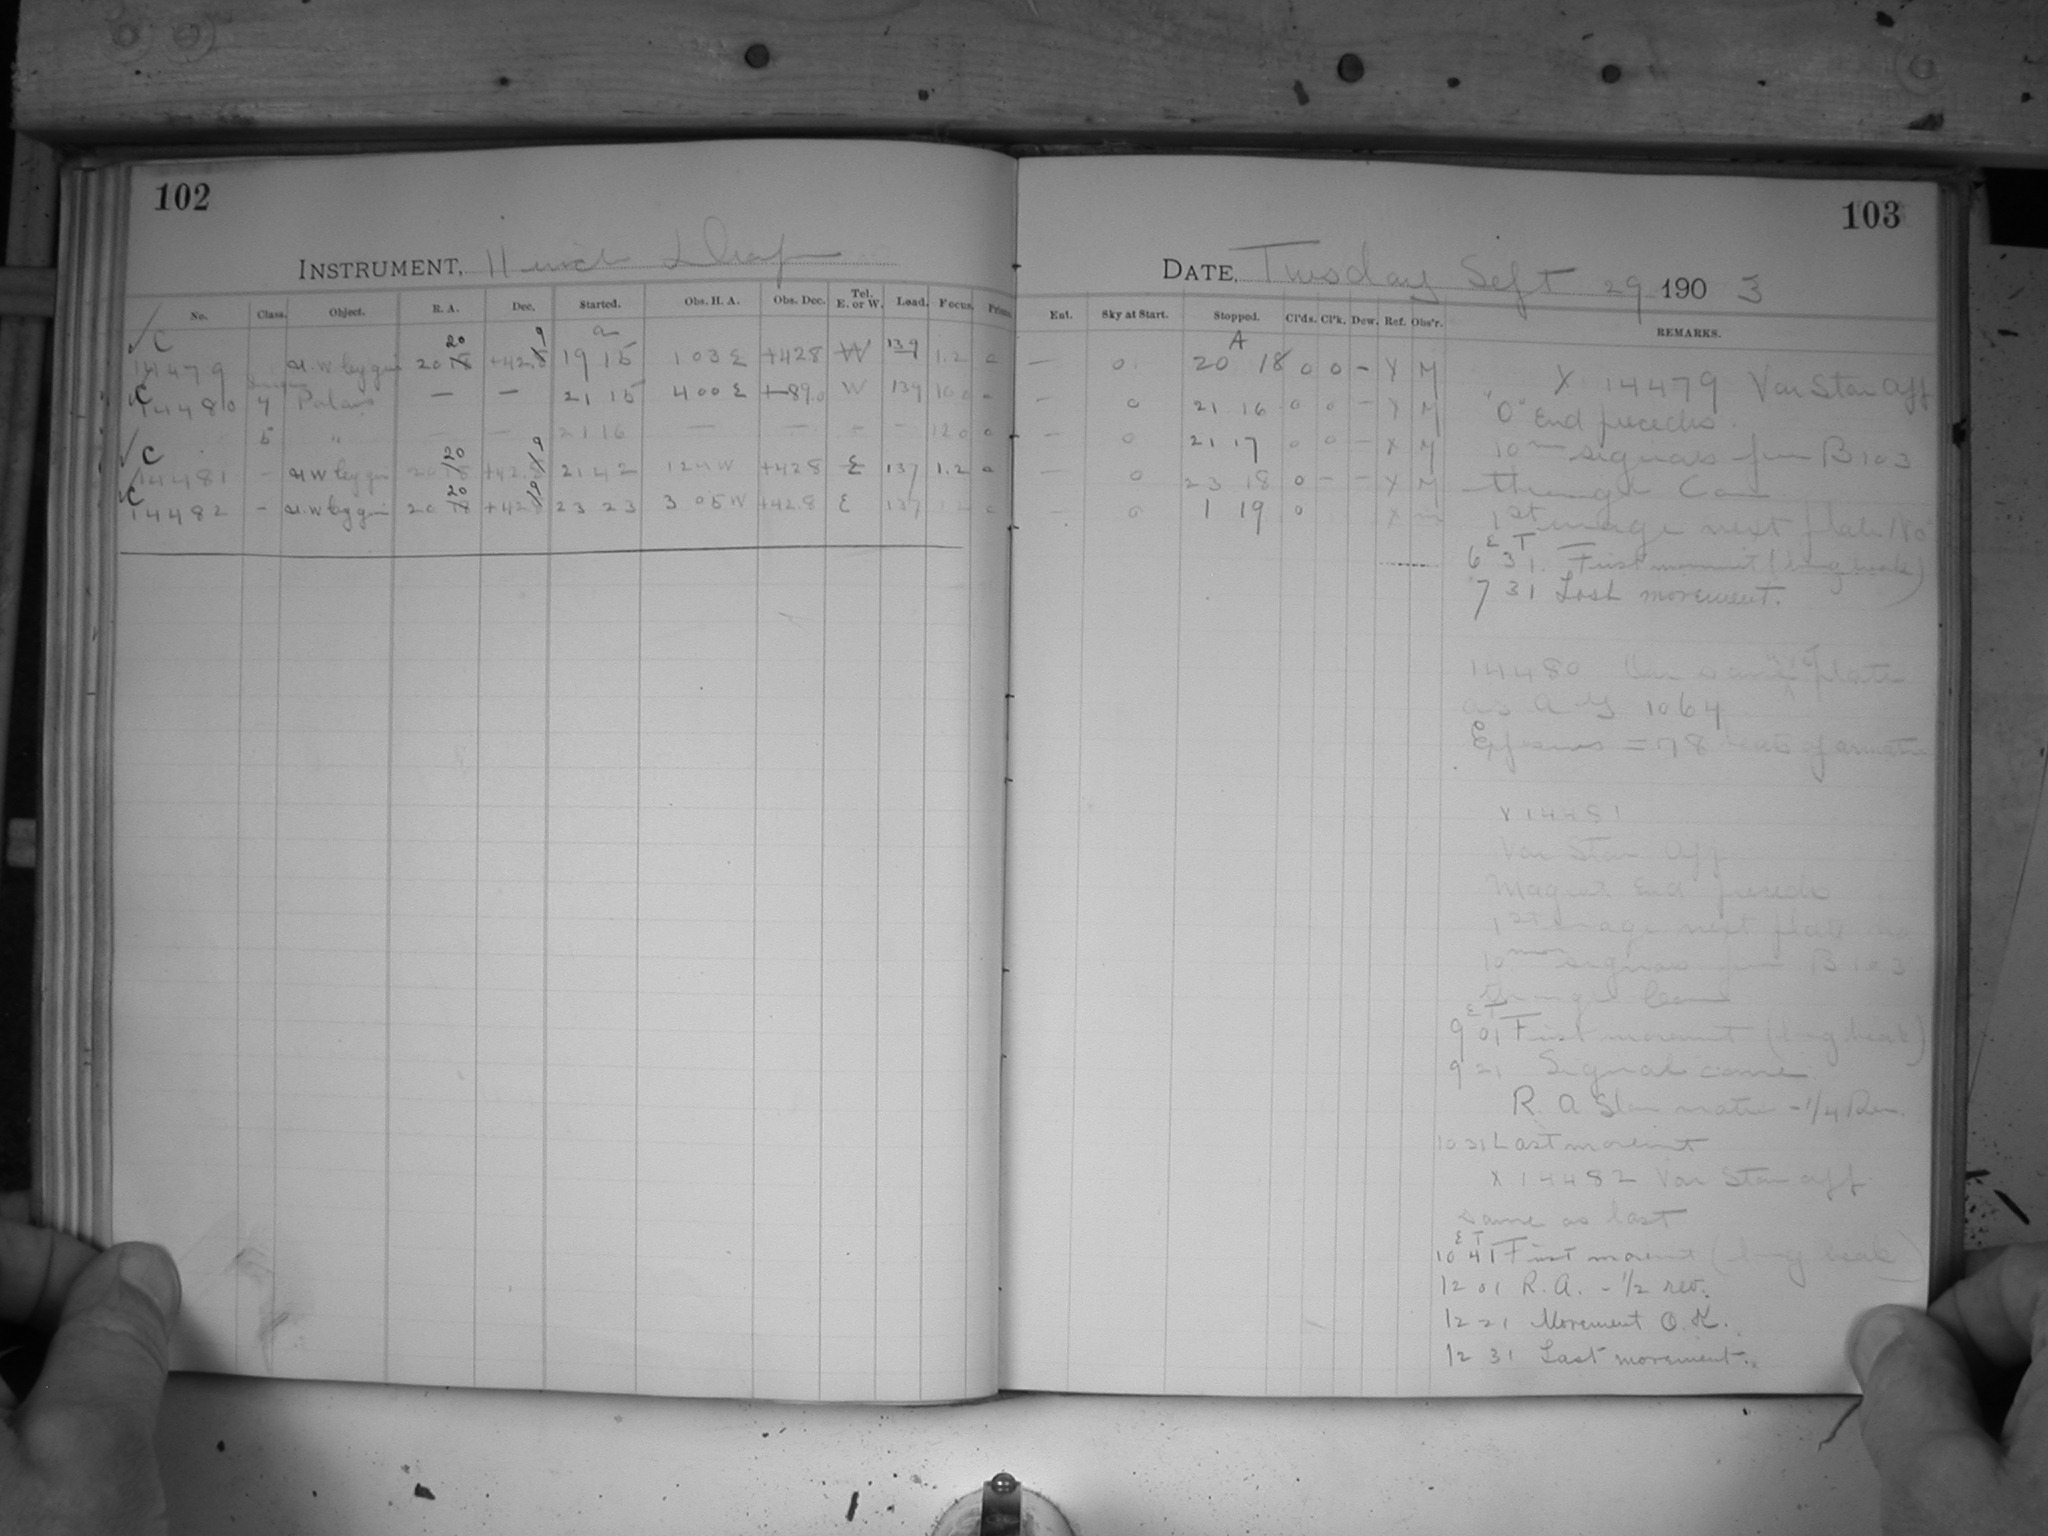 102
INSTRUMENT, 11 inch Draper
No. Class. Object. R. A. Dec. Started. Obs. H. A. Obs. Dec. Tel. E. or W. Load. Focus. Prisms.
✓C 20 9 a 139
14479 20 18 +42.8 19 15 1 03 E +42.8 W 1.2 0
✓C
14480 4 Polaris — — 21 15 4 00 E +89.0 W 139 10.0
5 " — — 21 16 — — — — 12.0 0
✓C 20 9
14481 — 20 18 +42.8 21 42 1 24 W +42.8 E 137 1.2 0
✓C 20 9
14482 — 20 18 +42.8 23 23 3 05 W +42.8 E 137 1.2 0
103
DATE, Tuesday Sept 29 1903
Ent. Sky at Start. Stopped. Cl'ds. Cl'k. Dew. Ref. Obs'r. REMARKS.
A
— 0 20 18 0 0 — X M
— 0 21 16 0 0 — X M
— 0 21 17 0 0 — X M
— 0 23 18 0 — — X M
— 0 1 19 0 X m
X 14479 Var Star aff
"O" End precedes.
10 min signals from B 103
through Cam
1st image next plate No
E T
6 31. First movement (long beak)
7 31 Last movement.
14480 On same plate
as 1064
Exposures = 78
X 14481
Var Star Aff
Magnet End precedes
1st image next plate no
10 min signals from B 103
through Cam
E T
9 01 First movement (long beak)
9 21 Signal came
R. A Slow motion - 1/4 Rev.
10 31 Last movement
X 14482 Var Star aff
same as last
E T
10 41 First movement (long beak)
12 01 R. A. - 1/2 rev.
12 21 Movement O. K.
12 31 Last movement.